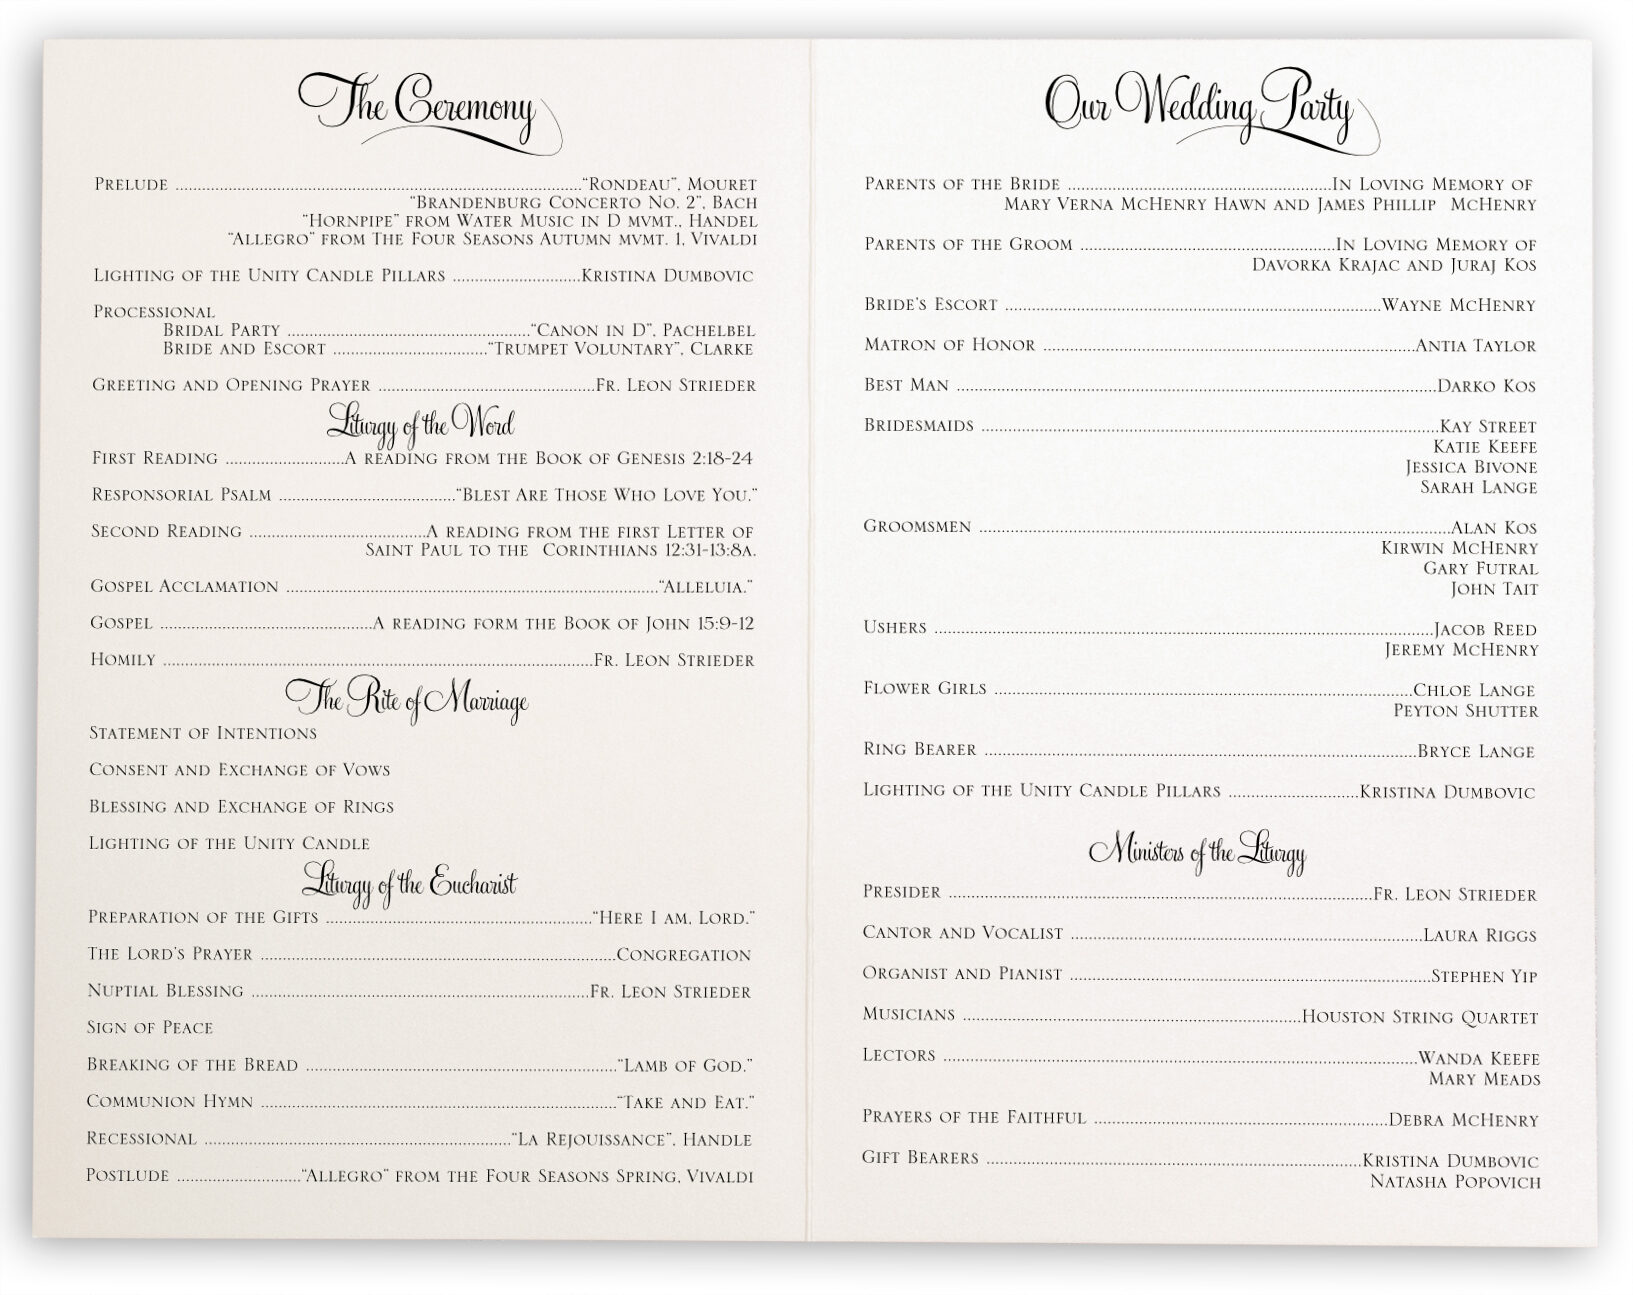 The Ceremony
Prelude ..........“Rondeau”, Mouret
“Brandenburg Concerto No. 2”, Bach
“Hornpipe” from Water Music in D mvmt., Handel
“Allegro” from The Four Seasons Autumn mvmt. 1, Vivaldi
Lighting of the Unity Candle Pillars ..........Kristina Dumbovic
Processional
Bridal Party ..........“Canon in D”, Pachelbel
Bride and Escort ..........“Trumpet Voluntary”, Clarke
Greeting and Opening Prayer ..........Fr. Leon Strieder
Liturgy of the Word
First Reading ..........A reading from the Book of Genesis 2:18-24
Responsorial Psalm ..........“Blest Are Those Who Love You.”
Second Reading ..........A reading from the first Letter of
Saint Paul to the Corinthians 12:31-13:8a.
Gospel Acclamation ..........“Alleluia.”
Gospel ..........A reading form the Book of John 15:9-12
Homily ..........Fr. Leon Strieder
The Rite of Marriage
Statement of Intentions
Consent and Exchange of Vows
Blessing and Exchange of Rings
Lighting of the Unity Candle
Liturgy of the Eucharist
Preparation of the Gifts ..........“Here I am, Lord.”
The Lord’s Prayer ..........Congregation
Nuptial Blessing ..........Fr. Leon Strieder
Sign of Peace
Breaking of the Bread ..........“Lamb of God.”
Communion Hymn ..........“Take and Eat.”
Recessional ..........“La Rejouissance”, Handle
Postlude ..........“Allegro” from the Four Seasons Spring, Vivaldi
Our Wedding Party
Parents of the Bride ..........In Loving Memory of
Mary Verna McHenry Hawn and James Phillip McHenry
Parents of the Groom ..........In Loving Memory of
Davorka Krajac and Juraj Kos
Bride’s Escort ..........Wayne McHenry
Matron of Honor ..........Antia Taylor
Best Man ..........Darko Kos
Bridesmaids ..........Kay Street
Katie Keefe
Jessica Bivone
Sarah Lange
Groomsmen ..........Alan Kos
Kirwin McHenry
Gary Futral
John Tait
Ushers ..........Jacob Reed
Jeremy McHenry
Flower Girls ..........Chloe Lange
Peyton Shutter
Ring Bearer ..........Bryce Lange
Lighting of the Unity Candle Pillars ..........Kristina Dumbovic
Ministers of the Liturgy
Presider ..........Fr. Leon Strieder
Cantor and Vocalist ..........Laura Riggs
Organist and Pianist ..........Stephen Yip
Musicians ..........Houston String Quartet
Lectors ..........Wanda Keefe
Mary Meads
Prayers of the Faithful ..........Debra McHenry
Gift Bearers ..........Kristina Dumbovic
Natasha Popovich